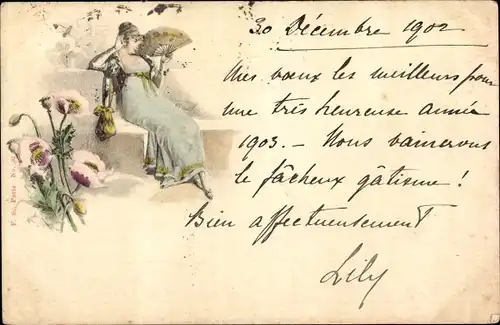 30 Décembre 1902
Mes vœux les meilleurs pour
une très heureuse année
1903. — Nous vaincrons
le fâcheux gâtisme !
Bien affectueusement
Lily